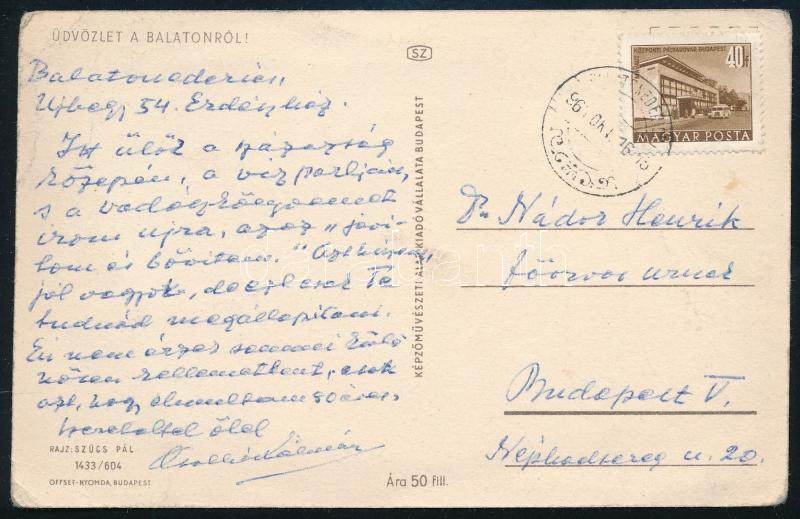 ÜDVÖZLET A BALATONRÓL!
Balatonederics,
Ujhegy 54. Erdészház.
Itt ülök a száraság
közepén, a víz partján,
s a vadászkönyvemet
írom ujra, azaz "javi-
tom és bővitem."
jól vagyok, de ezt csak Te
tudnád megállapítani.
Én nem érzek semmi külö
nösen kellemetlent, csak
azt, hogy elmultam 80 éves.
Szeretettel ölel
Kálmán
RAJZ: SZŰCS PÁL
1433/604
OFFSET-NYOMDA, BUDAPEST
SZ
KÉPZŐMŰVÉSZETI ALAP KIADÓ VÁLLALATA BUDAPEST
Ára 50 fill.
KÖZPONTI PÁLYAUDVAR, BUDAPEST
40f
MAGYAR POSTA
Dr Nádor Henrik
főorvos urnak
Budapest V.
Néphadsereg u. 20.
darabanth